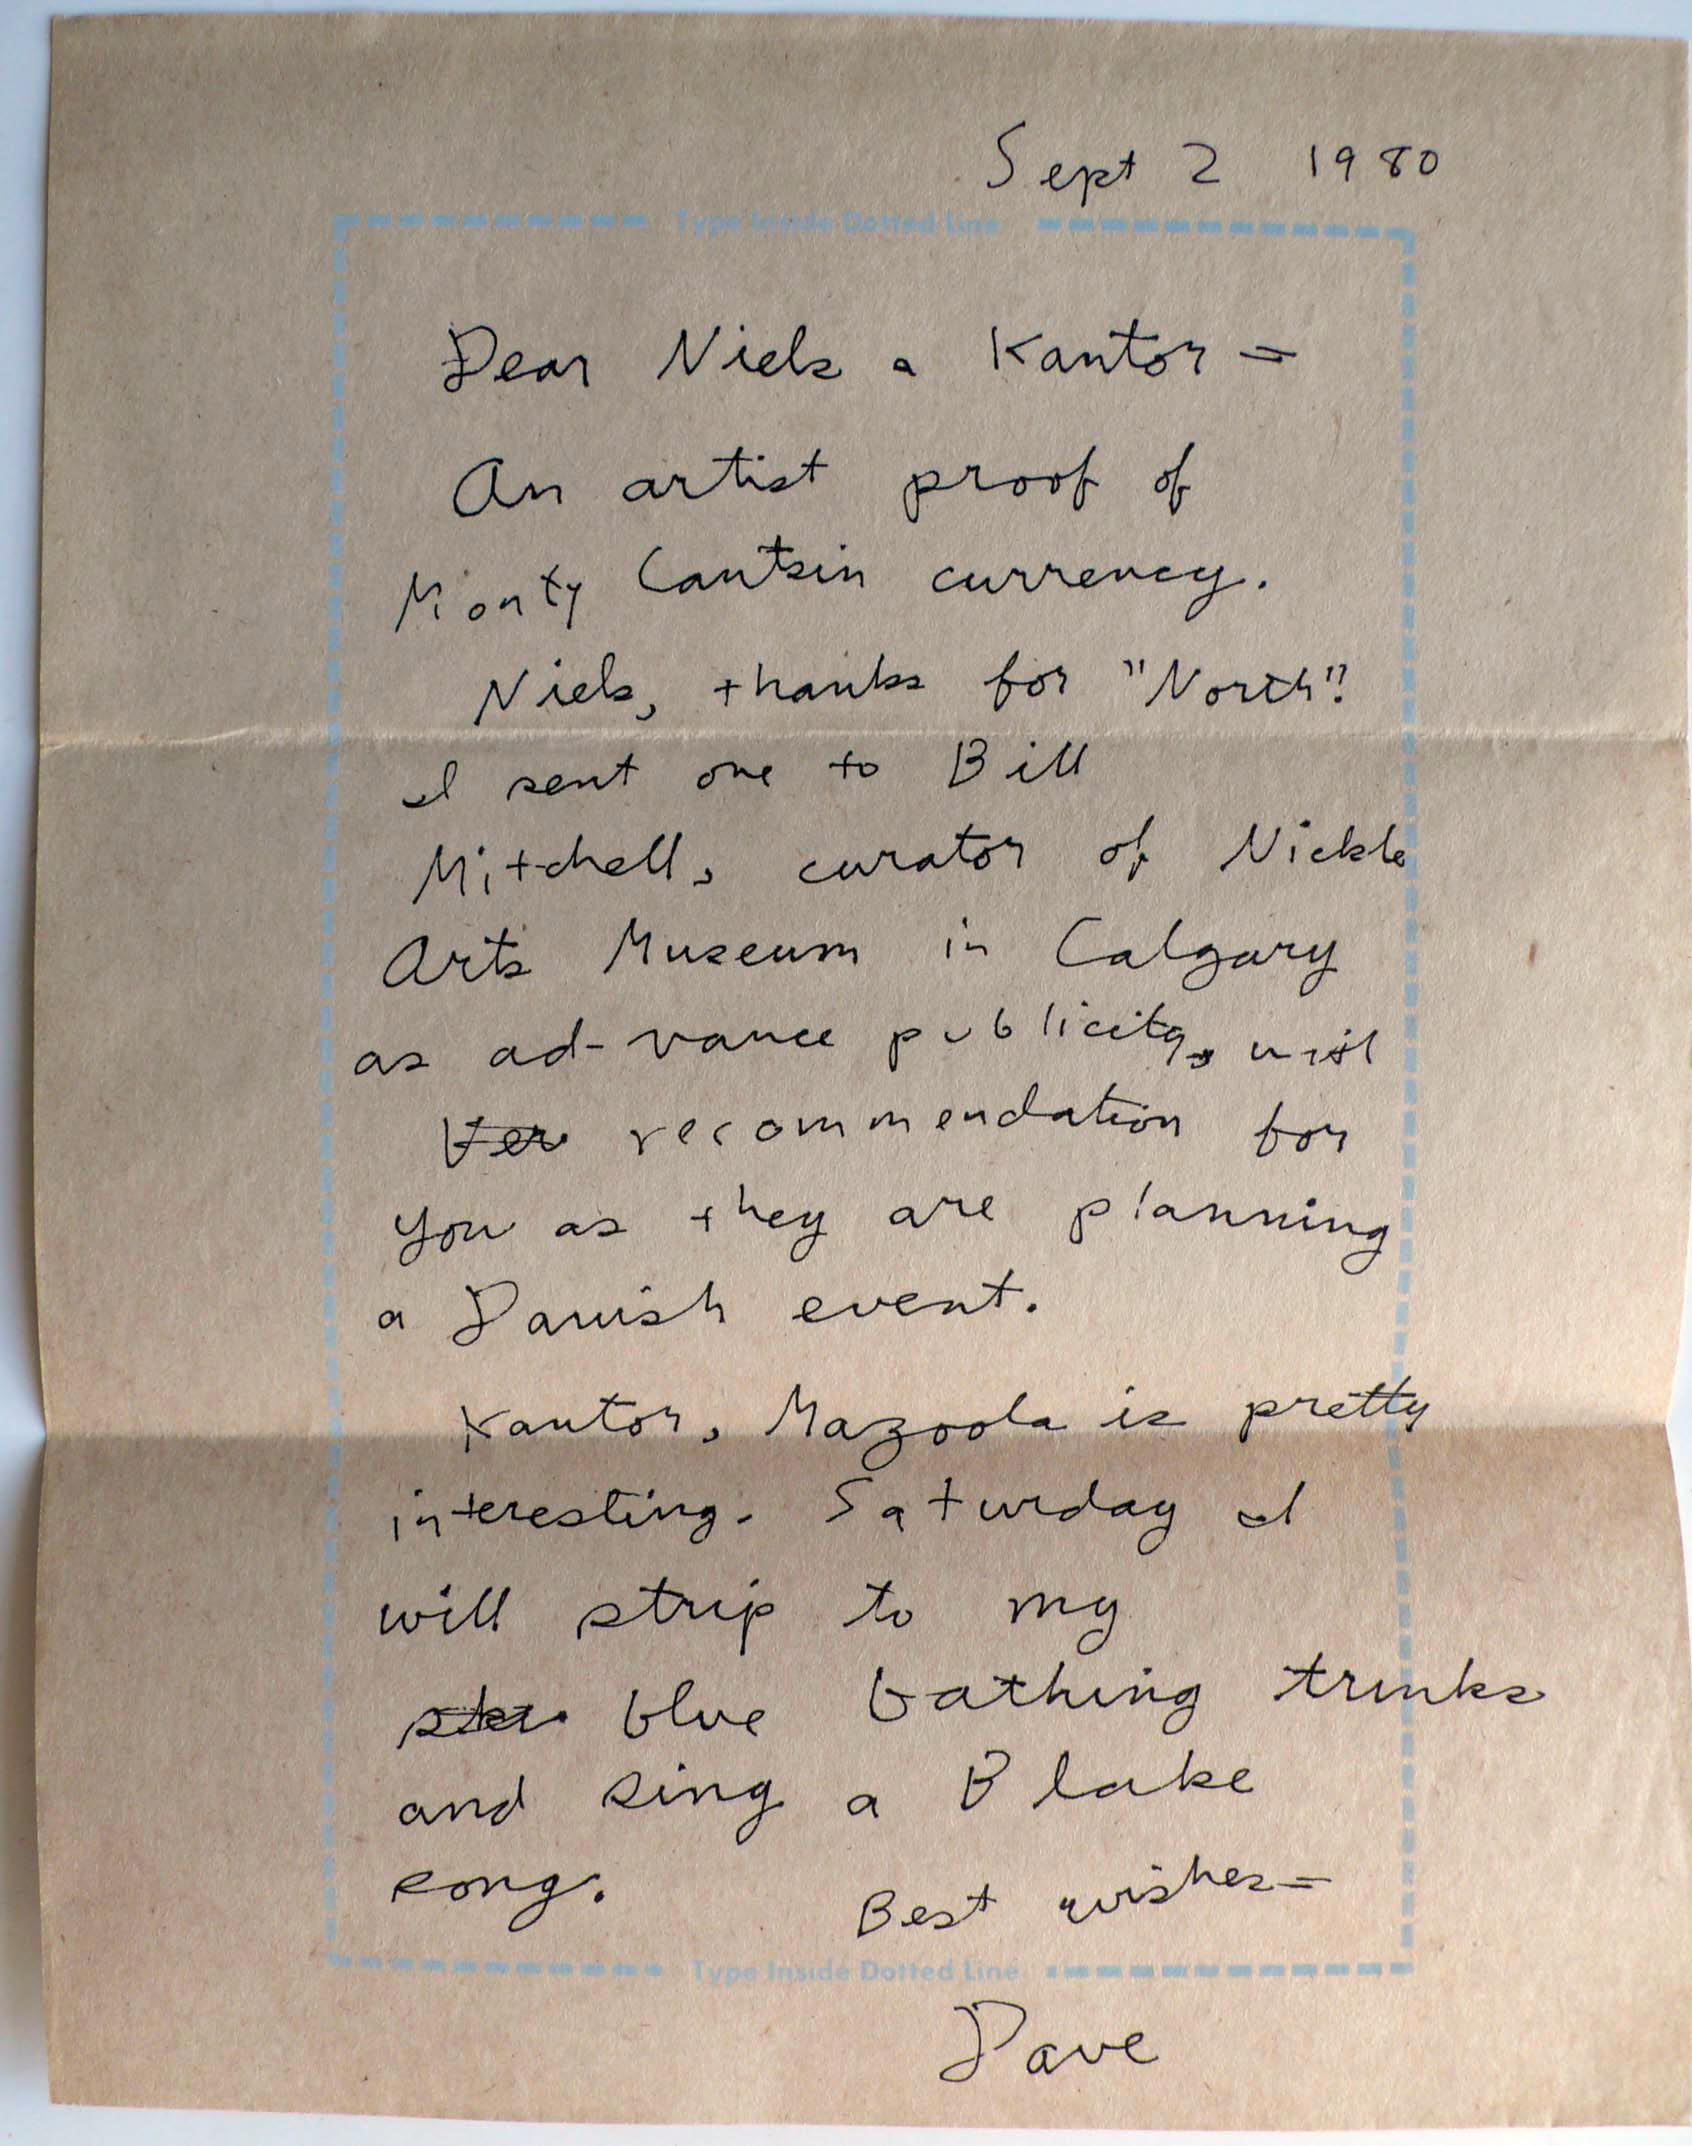 Sept 2 1980
Type Inside Dotted Line
Dear Niels a Kantor =
An artist proof of
Monty Cantsin currency.
Niels, thanks for "North".
I sent one to Bill
Mitchell, curator of Nickle
Arts Museum in Calgary
as ad-vance publicity,
recommendation for
you as they are planning
a Danish event.
Kantor, Mazoola is pretty
interesting. Saturday I
will strip to my
blue bathing trunks
and sing a Blake
song.
Best wishes=
Type Inside Dotted Line
Dave